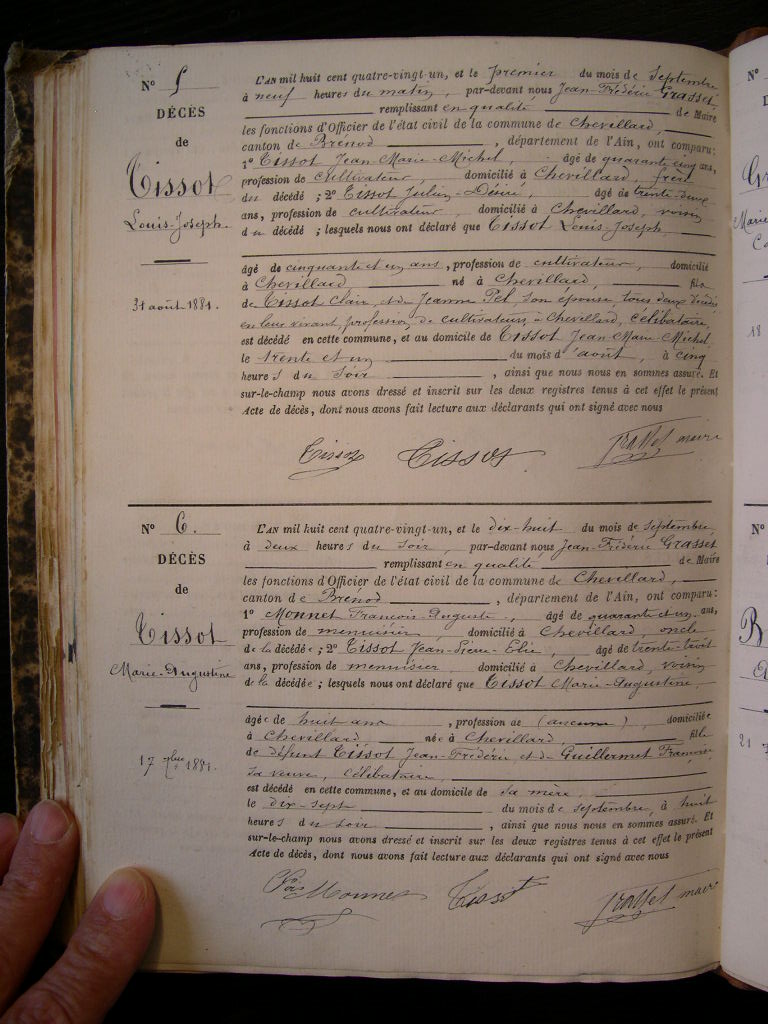 N° 5
DÉCÈS
de
Tissot
Louis-Joseph.
31 août 1881.
L'AN mil huit cent quatre-vingt-un, et le premier du mois de Septembre,
à neuf heures du matin, par-devant nous Jean-Frédéric Grasset,
remplissant en qualité de Maire
les fonctions d'Officier de l'état civil de la commune de Chevillard,
canton de Brénod, département de l'Ain, ont comparu :
1° Tissot Jean-Marie-Michel, âgé de quarante cinq ans,
profession de cultivateur, domicilié à Chevillard, frère
du décédé ; 2° Tissot Julien-Désiré, âgé de trente-deux
ans, profession de cultivateur, domicilié à Chevillard, voisin
du décédé ; lesquels nous ont déclaré que Tissot Louis-Joseph,
âgé de cinquante et un ans, profession de cultivateur, domicilié
à Chevillard né à Chevillard, fils
de Tissot Clair, et de Jeanne Pel, son épouse, tous deux
en leur vivant profession de cultivateurs, à Chevillard, célibataire,
est décédé en cette commune, et au domicile de Tissot Jean Marie Michel,
le trente et un du mois d'août, à cinq
heures du soir, ainsi que nous nous en sommes assuré. Et
sur-le-champ nous avons dressé et inscrit sur les deux registres tenus à cet effet le présent
Acte de décès, dont nous avons fait lecture aux déclarants qui ont signé avec nous
Tissot Tissot Grasset maire
N° 6.
DÉCÈS
de
Tissot
Marie-Augustine
17 7bre 1881.
L'AN mil huit cent quatre-vingt-un, et le dix-huit du mois de Septembre,
à deux heures du soir, par-devant nous Jean-Frédéric Grasset
remplissant en qualité de Maire
les fonctions d'Officier de l'état civil de la commune de Chevillard,
canton de Brénod, département de l'Ain, ont comparu :
1° Monnet François-Auguste, âgé de quarante et un ans,
profession de menuisier, domicilié à Chevillard, oncle
de la décédée ; 2° Tissot Jean-Pierre-Elie, âgé de trente-huit
ans, profession de menuisier domicilié à Chevillard, voisin
de la décédée ; lesquels nous ont déclaré que Tissot Marie-Augustine,
âgée de huit ans, profession de (aucune), domiciliée
à Chevillard, née à Chevillard, fille
de défunt Tissot Jean-Frédéric, et de Guillermet Françoise
sa veuve, célibataire,
est décédée en cette commune, et au domicile de sa mère,
le dix-sept du mois de septembre, à huit
heures du soir, ainsi que nous nous en sommes assuré. Et
sur-le-champ nous avons dressé et inscrit sur les deux registres tenus à cet effet le présent
Acte de décès, dont nous avons fait lecture aux déclarants qui ont signé avec nous
Monnet Tissot Grasset maire